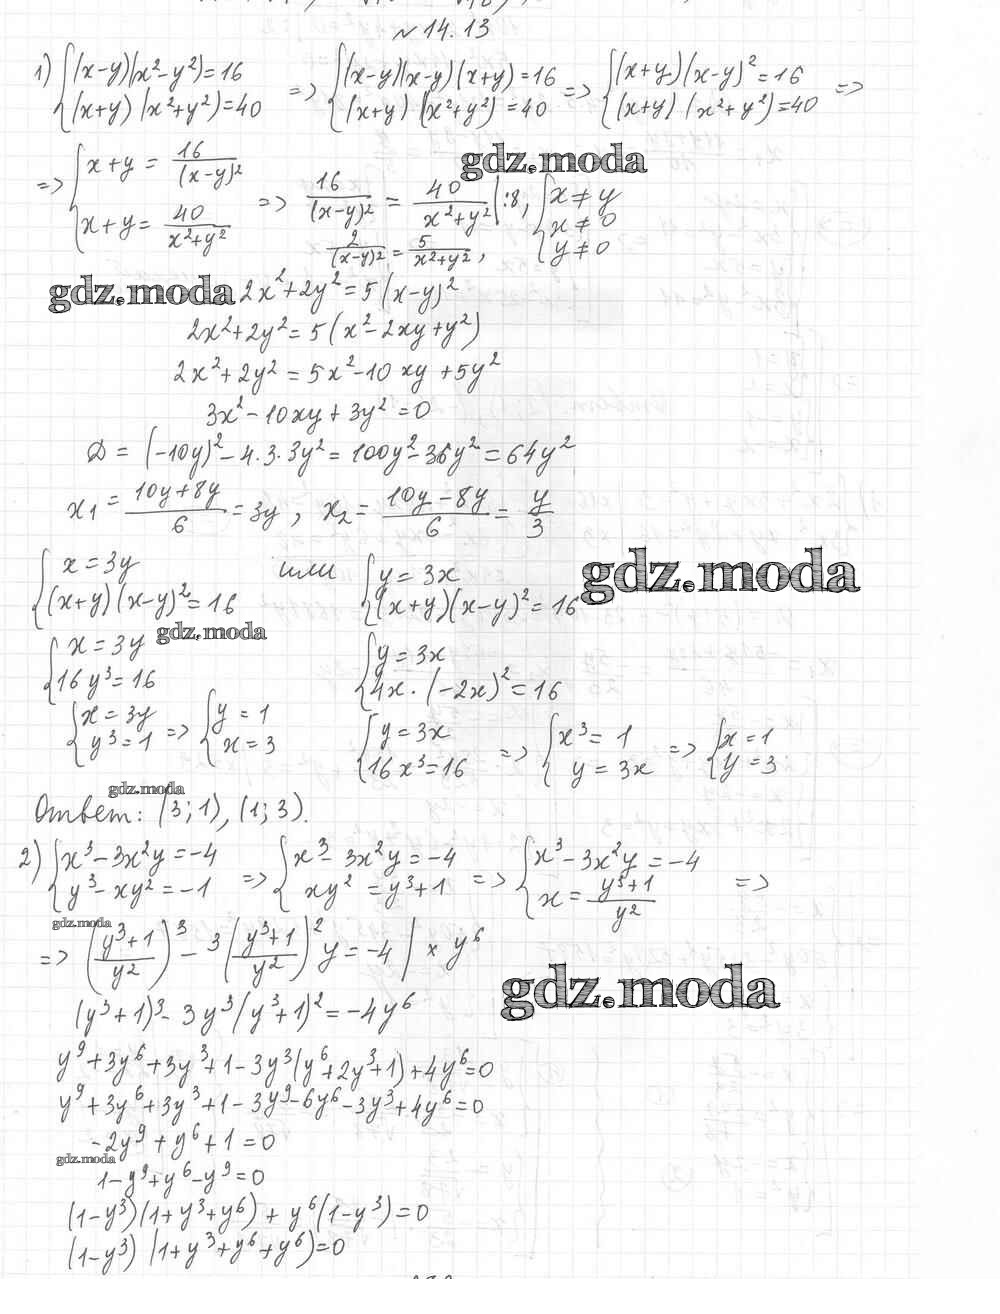 № 14.13
1) { (x-y)(x²-y²)=16 => { (x-y)(x-y)(x+y)=16 => { (x+y)(x-y)²=16 =>
(x+y)(x²+y²)=40 (x+y)(x²+y²)=40 (x+y)(x²+y²)=40
gdz.moda
=> { x+y = 16/(x-y)² => 16/(x-y)² = 40/(x²+y²) | :8, { x≠y
x+y = 40/(x²+y²) x≠0
2/(x-y)² = 5/(x²+y²), y≠0
gdz.moda 2x²+2y²=5(x-y)²
2x²+2y²=5(x²-2xy+y²)
2x²+2y²=5x²-10xy+5y²
3x²-10xy+3y²=0
D = (-10y)²-4·3·3y²=100y²-36y²=64y²
x₁ = (10y+8y)/6 = 3y, x₂ = (10y-8y)/6 = y/3
{ x=3y или { y=3x
(x+y)(x-y)²=16 (x+y)(x-y)²=16
gdz.moda
gdz.moda
{ x=3y { y=3x
16y³=16 4x·(-2x)²=16
{ x=3y => { y=1 { y=3x => { x³=1 => { x=1
y³=1 x=3 16x³=16 y=3x y=3
gdz.moda
Ответ: (3;1), (1;3).
2) { x³-3x²y=-4 => { x³-3x²y=-4 => { x³-3x²y=-4 =>
y³-xy²=-1 xy²=y³+1 x=(y³+1)/y²
gdz.moda
=> ((y³+1)/y²)³ - 3((y³+1)/y²)² y = -4 | × y⁶
gdz.moda
(y³+1)³-3y³(y³+1)²=-4y⁶
y⁹+3y⁶+3y³+1-3y³(y⁶+2y³+1)+4y⁶=0
y⁹+3y⁶+3y³+1-3y⁹-6y⁶-3y³+4y⁶=0
-2y⁹+y⁶+1=0
gdz.moda
1-y⁹+y⁶-y⁹=0
(1-y³)(1+y³+y⁶)+y⁶(1-y³)=0
(1-y³)(1+y³+y⁶+y⁶)=0